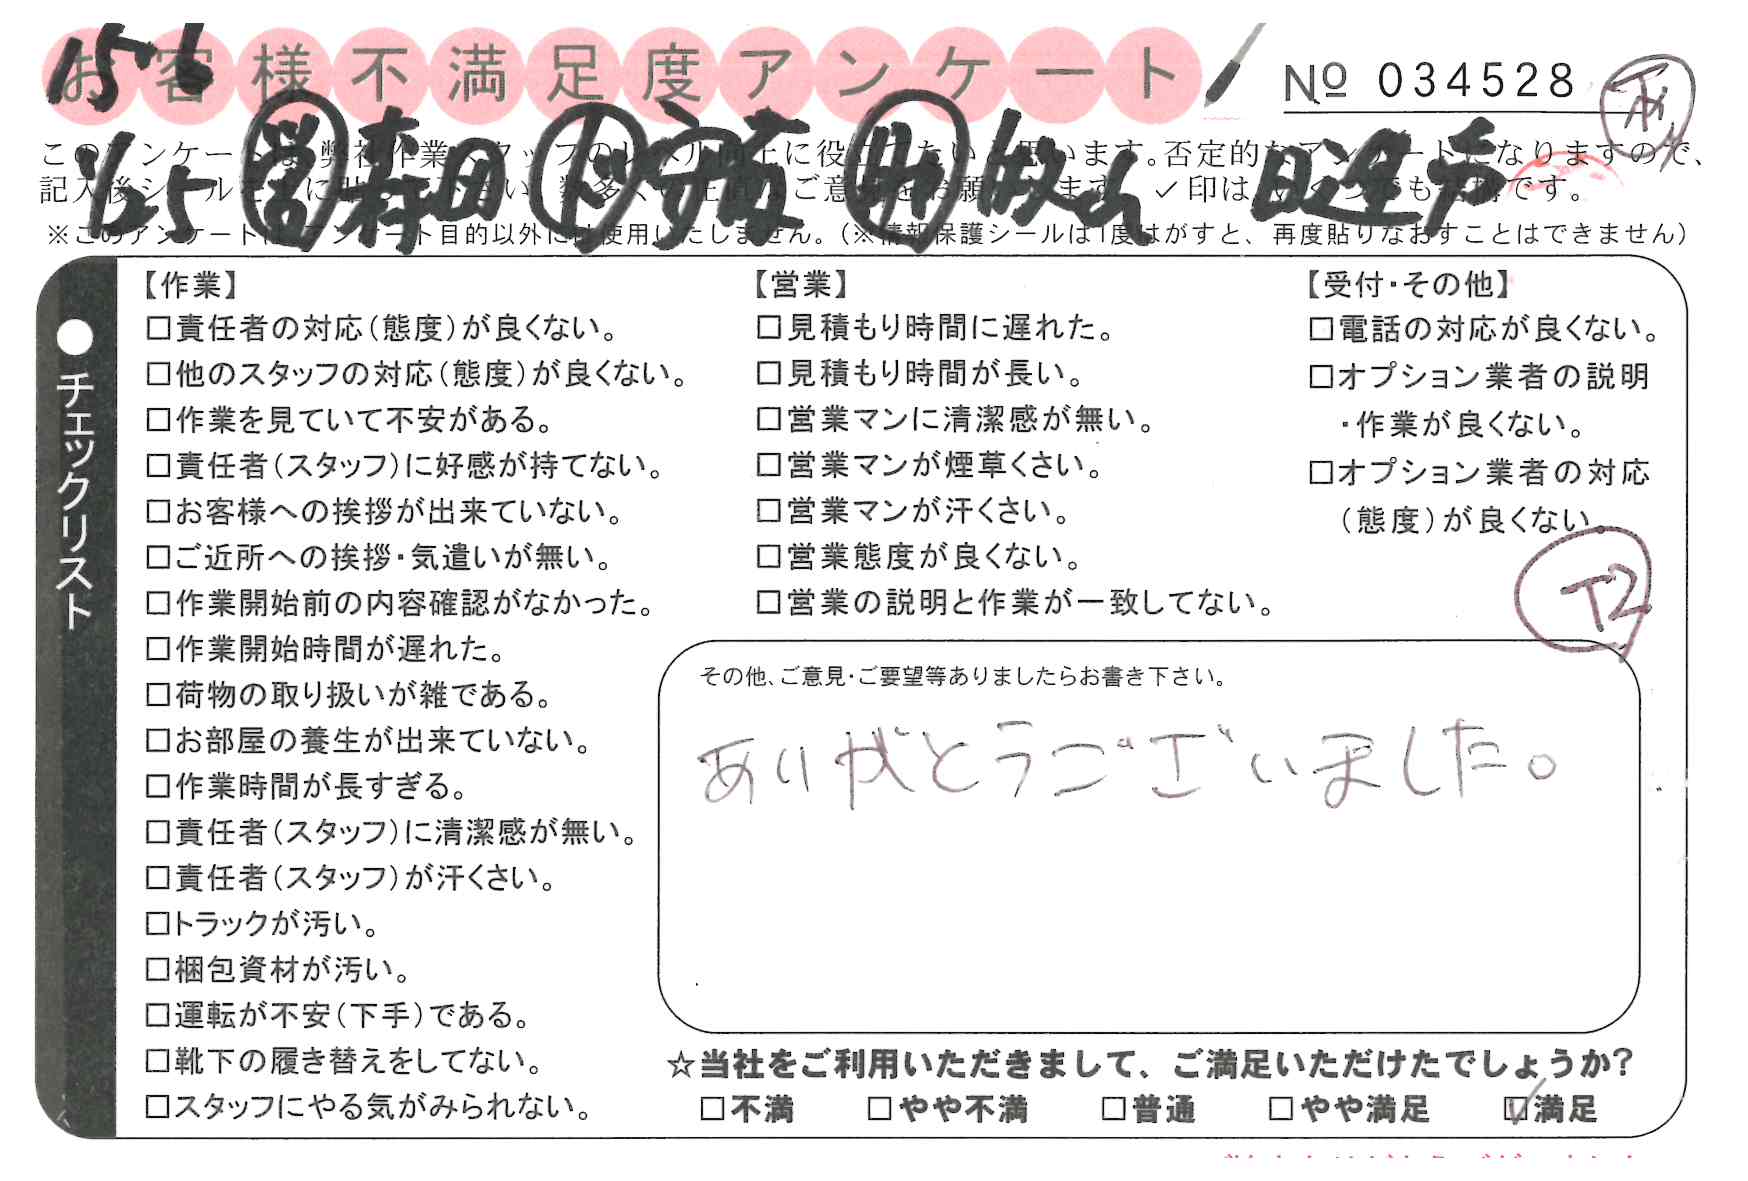 お客様不満足度アンケート
№ 034528
15-6
1/25 営 森田 ト 安森 助 牧山 日進戸
このアンケートは、弊社作業スタッフのレベル向上に役立てたいと思います。否定的なアンケートになりますので、
記入後シールを上に貼って下さい。数多くの正直なご意見をお願いします。✓印は、いくつでも結構です。
※このアンケートは、アンケート目的以外には使用いたしません。(※情報保護シールは1度はがすと、再度貼りなおすことはできません)
●チェックリスト
【作業】
□責任者の対応(態度)が良くない。
□他のスタッフの対応(態度)が良くない。
□作業を見ていて不安がある。
□責任者(スタッフ)に好感が持てない。
□お客様への挨拶が出来ていない。
□ご近所への挨拶・気遣いが無い。
□作業開始前の内容確認がなかった。
□作業開始時間が遅れた。
□荷物の取り扱いが雑である。
□お部屋の養生が出来ていない。
□作業時間が長すぎる。
□責任者(スタッフ)に清潔感が無い。
□責任者(スタッフ)が汗くさい。
□トラックが汚い。
□梱包資材が汚い。
□運転が不安(下手)である。
□靴下の履き替えをしてない。
□スタッフにやる気がみられない。
【営業】
□見積もり時間に遅れた。
□見積もり時間が長い。
□営業マンに清潔感が無い。
□営業マンが煙草くさい。
□営業マンが汗くさい。
□営業態度が良くない。
□営業の説明と作業が一致してない。
【受付・その他】
□電話の対応が良くない。
□オプション業者の説明
・作業が良くない。
□オプション業者の対応
(態度)が良くない。
T2
その他、ご意見・ご要望等ありましたらお書き下さい。
ありがとうございました。
☆当社をご利用いただきまして、ご満足いただけたでしょうか?
□不満 □やや不満 □普通 □やや満足 ☑満足